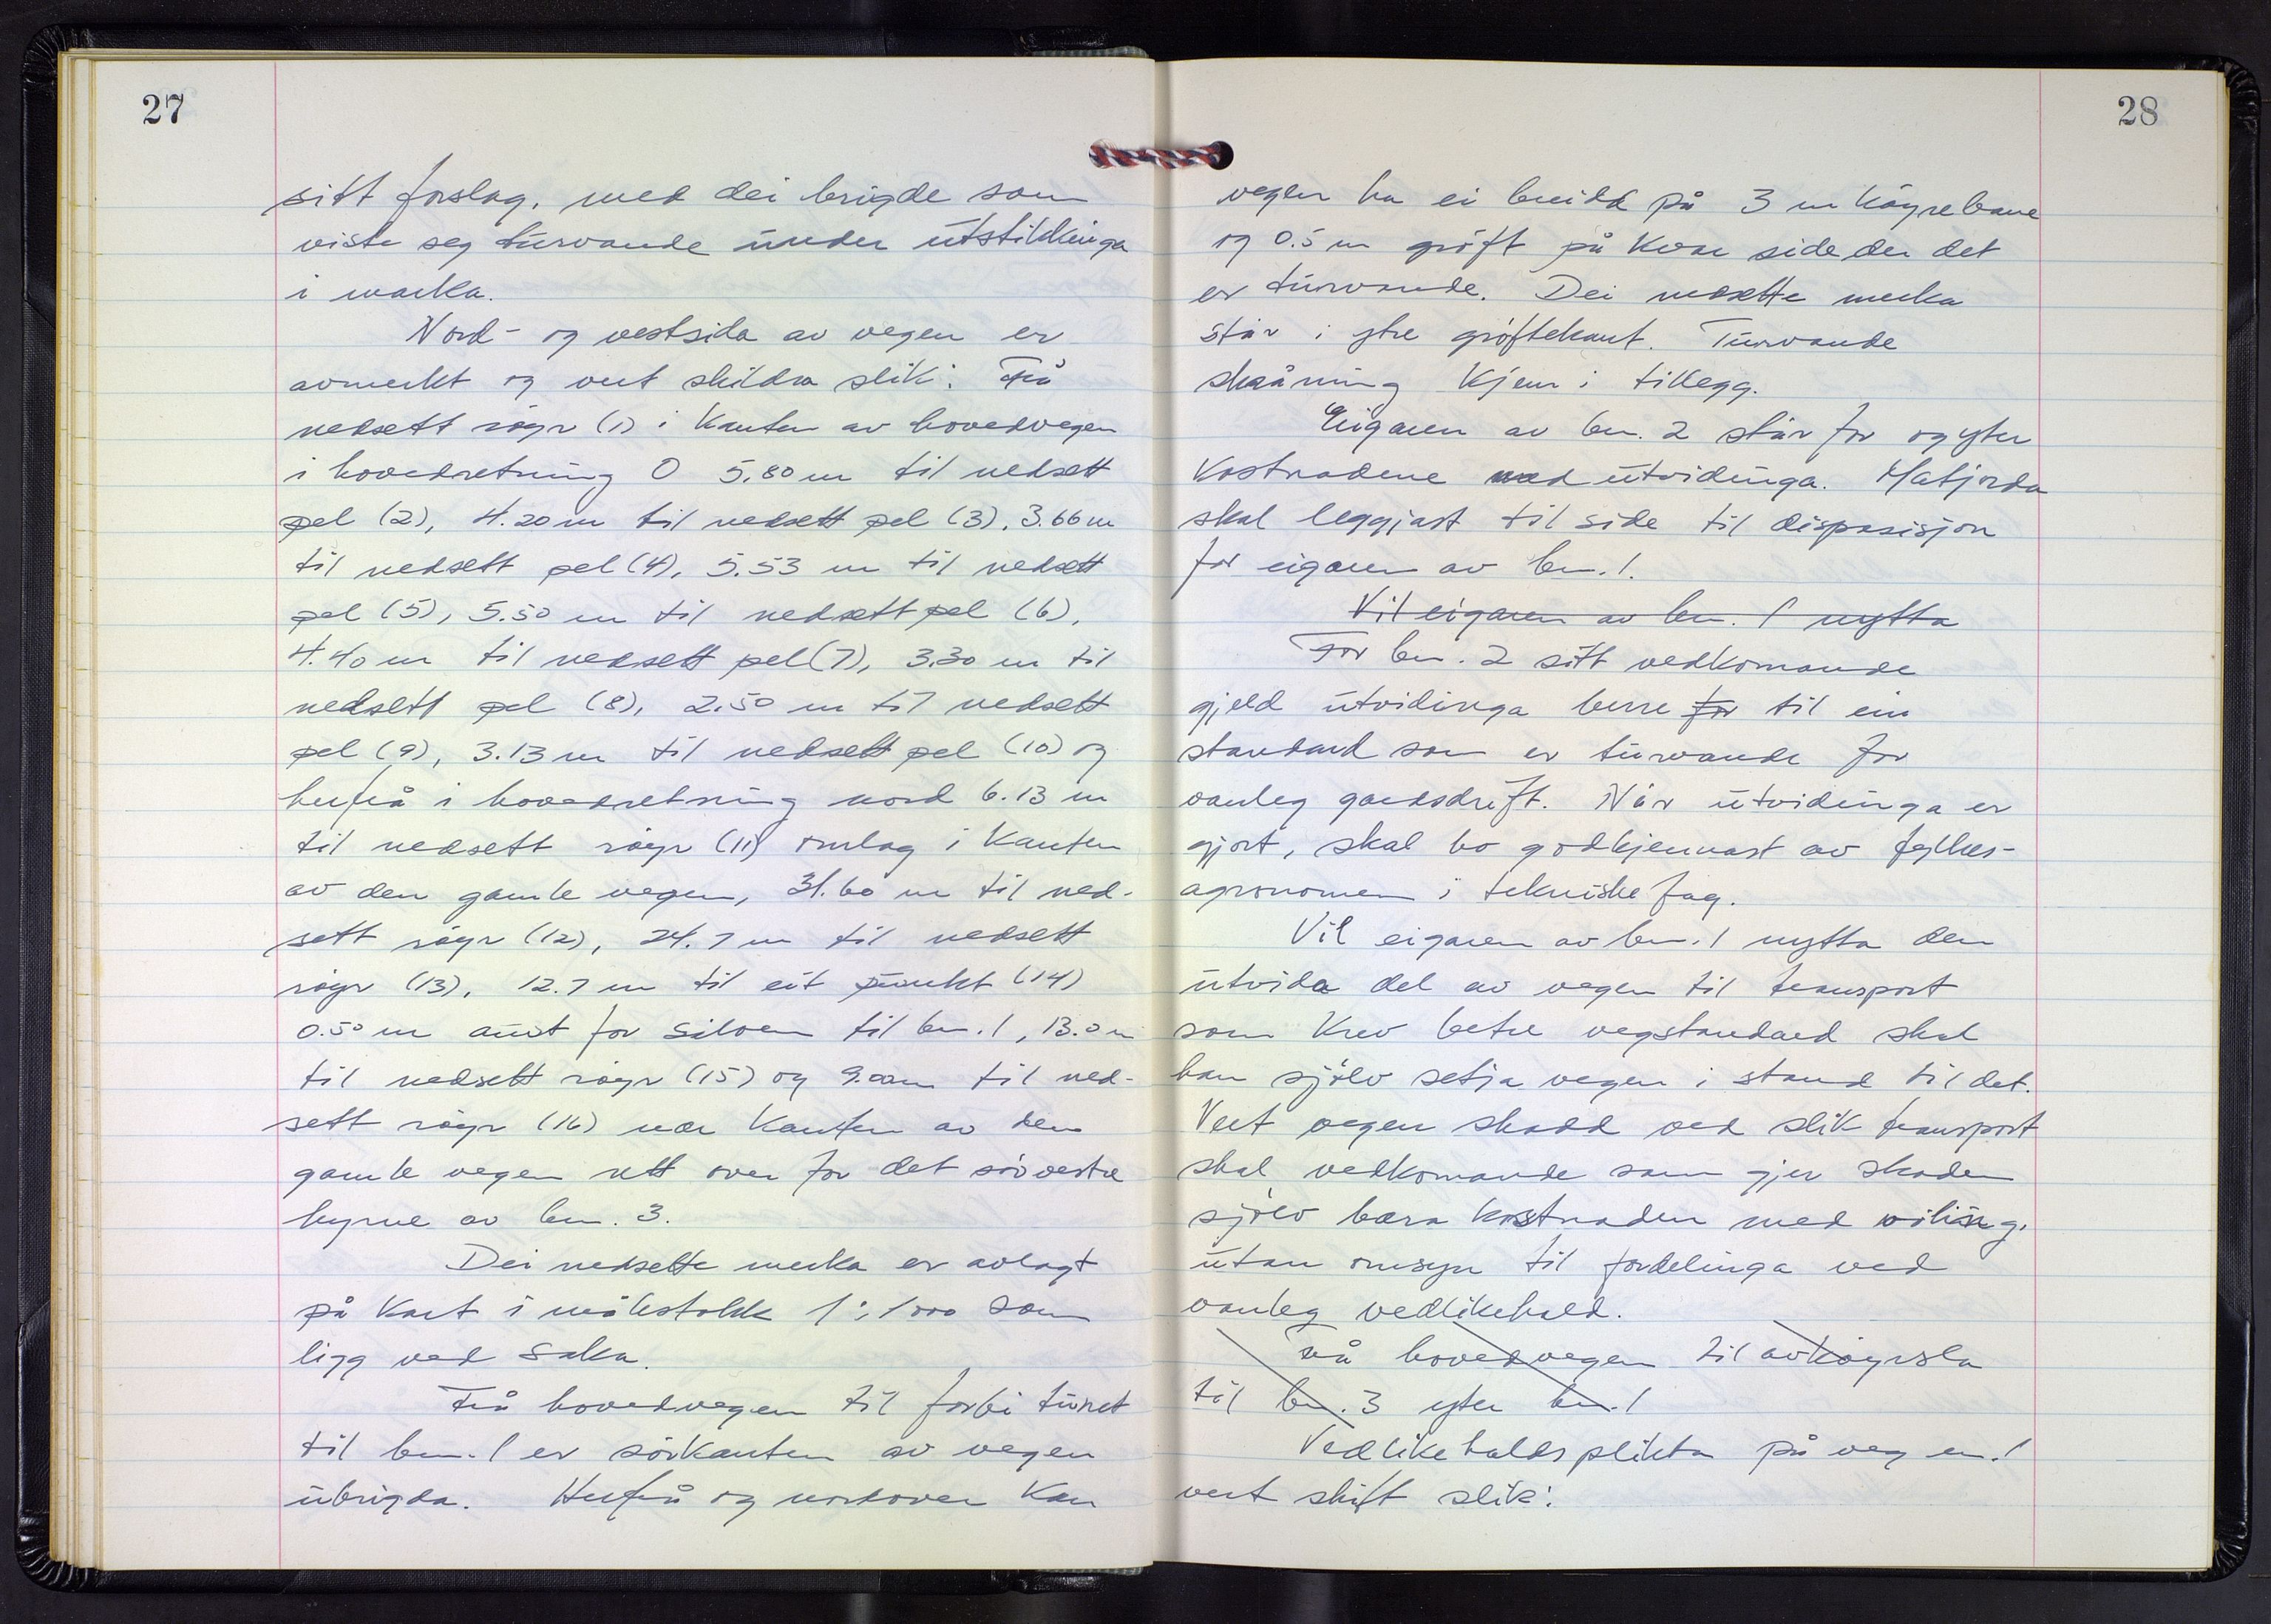 27
sitt forslag, med dei brigde som
viste seg turvande under utstikkinga
i marka.
Nord- og vestsida av vegen er
avmerkt og vert skildra slik: Frå
nedsett røyr (1) i kanten av hovedvegen
i hovedretning O 5.80 m til nedsett
pel (2), 4.20 m til nedsett pel (3), 3.66 m
til nedsett pel (4), 5.53 m til nedsett
pel (5), 5.50 m til nedsett pel (6),
4.40 m til nedsett pel (7), 3.30 m til
nedsett pel (8), 2.50 m til nedsett
pel (9), 3.13 m til nedsett pel (10) og
herfrå i hovedretning nord 6.13 m
til nedsett røyr (11) omlag i kanten
av den gamle vegen, 31.60 m til ned-
sett røyr (12), 24.7 m til nedsett
røyr (13), 12.7 m til eit punkt (14)
0.50 m aust for siloen til bn. 1, 13.0 m
til nedsett røyr (15) og 9.00 m til ned-
sett røyr (16) nær kanten av den
gamle vegen rett over for det sørvestre
hyrne av bn. 3.
Dei nedsette merka er avlagt
på kart i målestokk 1:1000 som
ligg ved saka.
Frå hovedvegen til forbi tunet
til bn. 1 er sørkanten av vegen
ubrigda. Herfrå og nordover kan
28
vegen ha ei breidd på 3 m køyrebane
og 0.5 m grøft på kvar side der det
er turvande. Dei nedsette merka
står i ytre grøftekant. Turvande
skråning kjem i tillegg.
Eigaren av bn. 2 står for og yter
kostnadene med utvidinga. Matjorda
skal leggjast til side til disposisjon
for eigaren av bn. 1.
Vil eigaren av bn. 1 nytta
For bn. 2 sitt vedkomande
gjeld utvidinga berre for til ein
standard som er turvande for
vanleg gardsdrift. Når utvidinga er
gjort, skal ho godkjennast av fylkes-
agronomen i tekniske fag.
Vil eigaren av bn. 1 nytta den
utvida del av vegen til transport
som krev betre vegstandard skal
han sjølv setja vegen i stand til det.
Vert vegen skadd ved slik transport
skal vedkomande som gjer skaden
sjølv bæra kostnaden med vøling,
utan omsyn til fordelinga ved
vanleg vedlikehald.
Frå hovedvegen til avkøyrsla
til bn. 3 yter bn. 1
Vedlikehaldsplikta på veg nr. 1
vert skift slik: